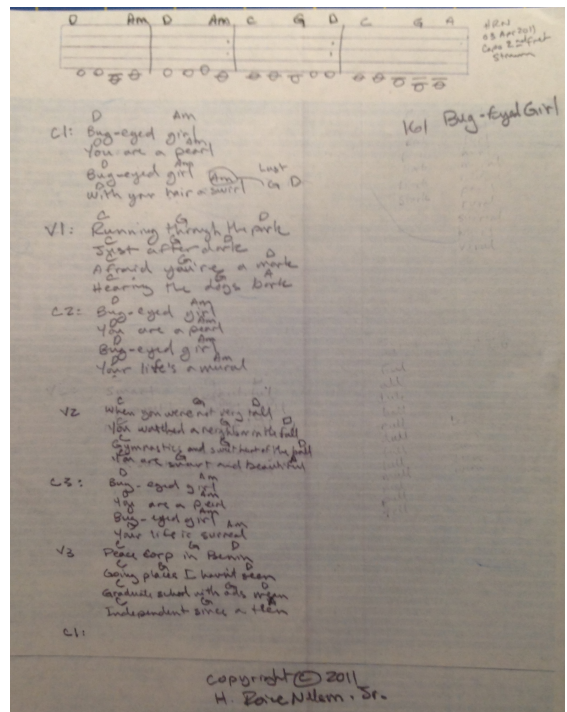 D Am D Am C G D C G A
HRN
03 Apr 2011
Capo 2nd fret
Strum
161 Bug-Eyed Girl
D Am
C1: Bug-eyed girl
D Am
You are a pearl
D Am
Bug-eyed girl
Am Last G D
With your hair a swirl
C G D
V1: Running through the park
C G D
Just after dark
C G D
Afraid you're a mark
C G A
Hearing the dogs bark
D Am
C2: Bug-eyed girl
D Am
You are a pearl
D Am
Bug-eyed girl
D Am
Your life's a mural
C G D
V2 When you were not very tall
C G D
You watched a neighbor in the fall
C G D
Gymnastics and sweetheart of the ball
C G A
You are smart and beautiful
D Am
C3: Bug-eyed girl
D Am
You are a pearl
D Am
Bug-eyed girl
D Am
Your life is surreal
C G D
V3 Peace Corp in Benin
C G D
Going places I haven't seen
C G D
Graduate school with ads mean
C G A
Independent since a teen
C1:
Copyright © 2011
H. Nelson, Jr.